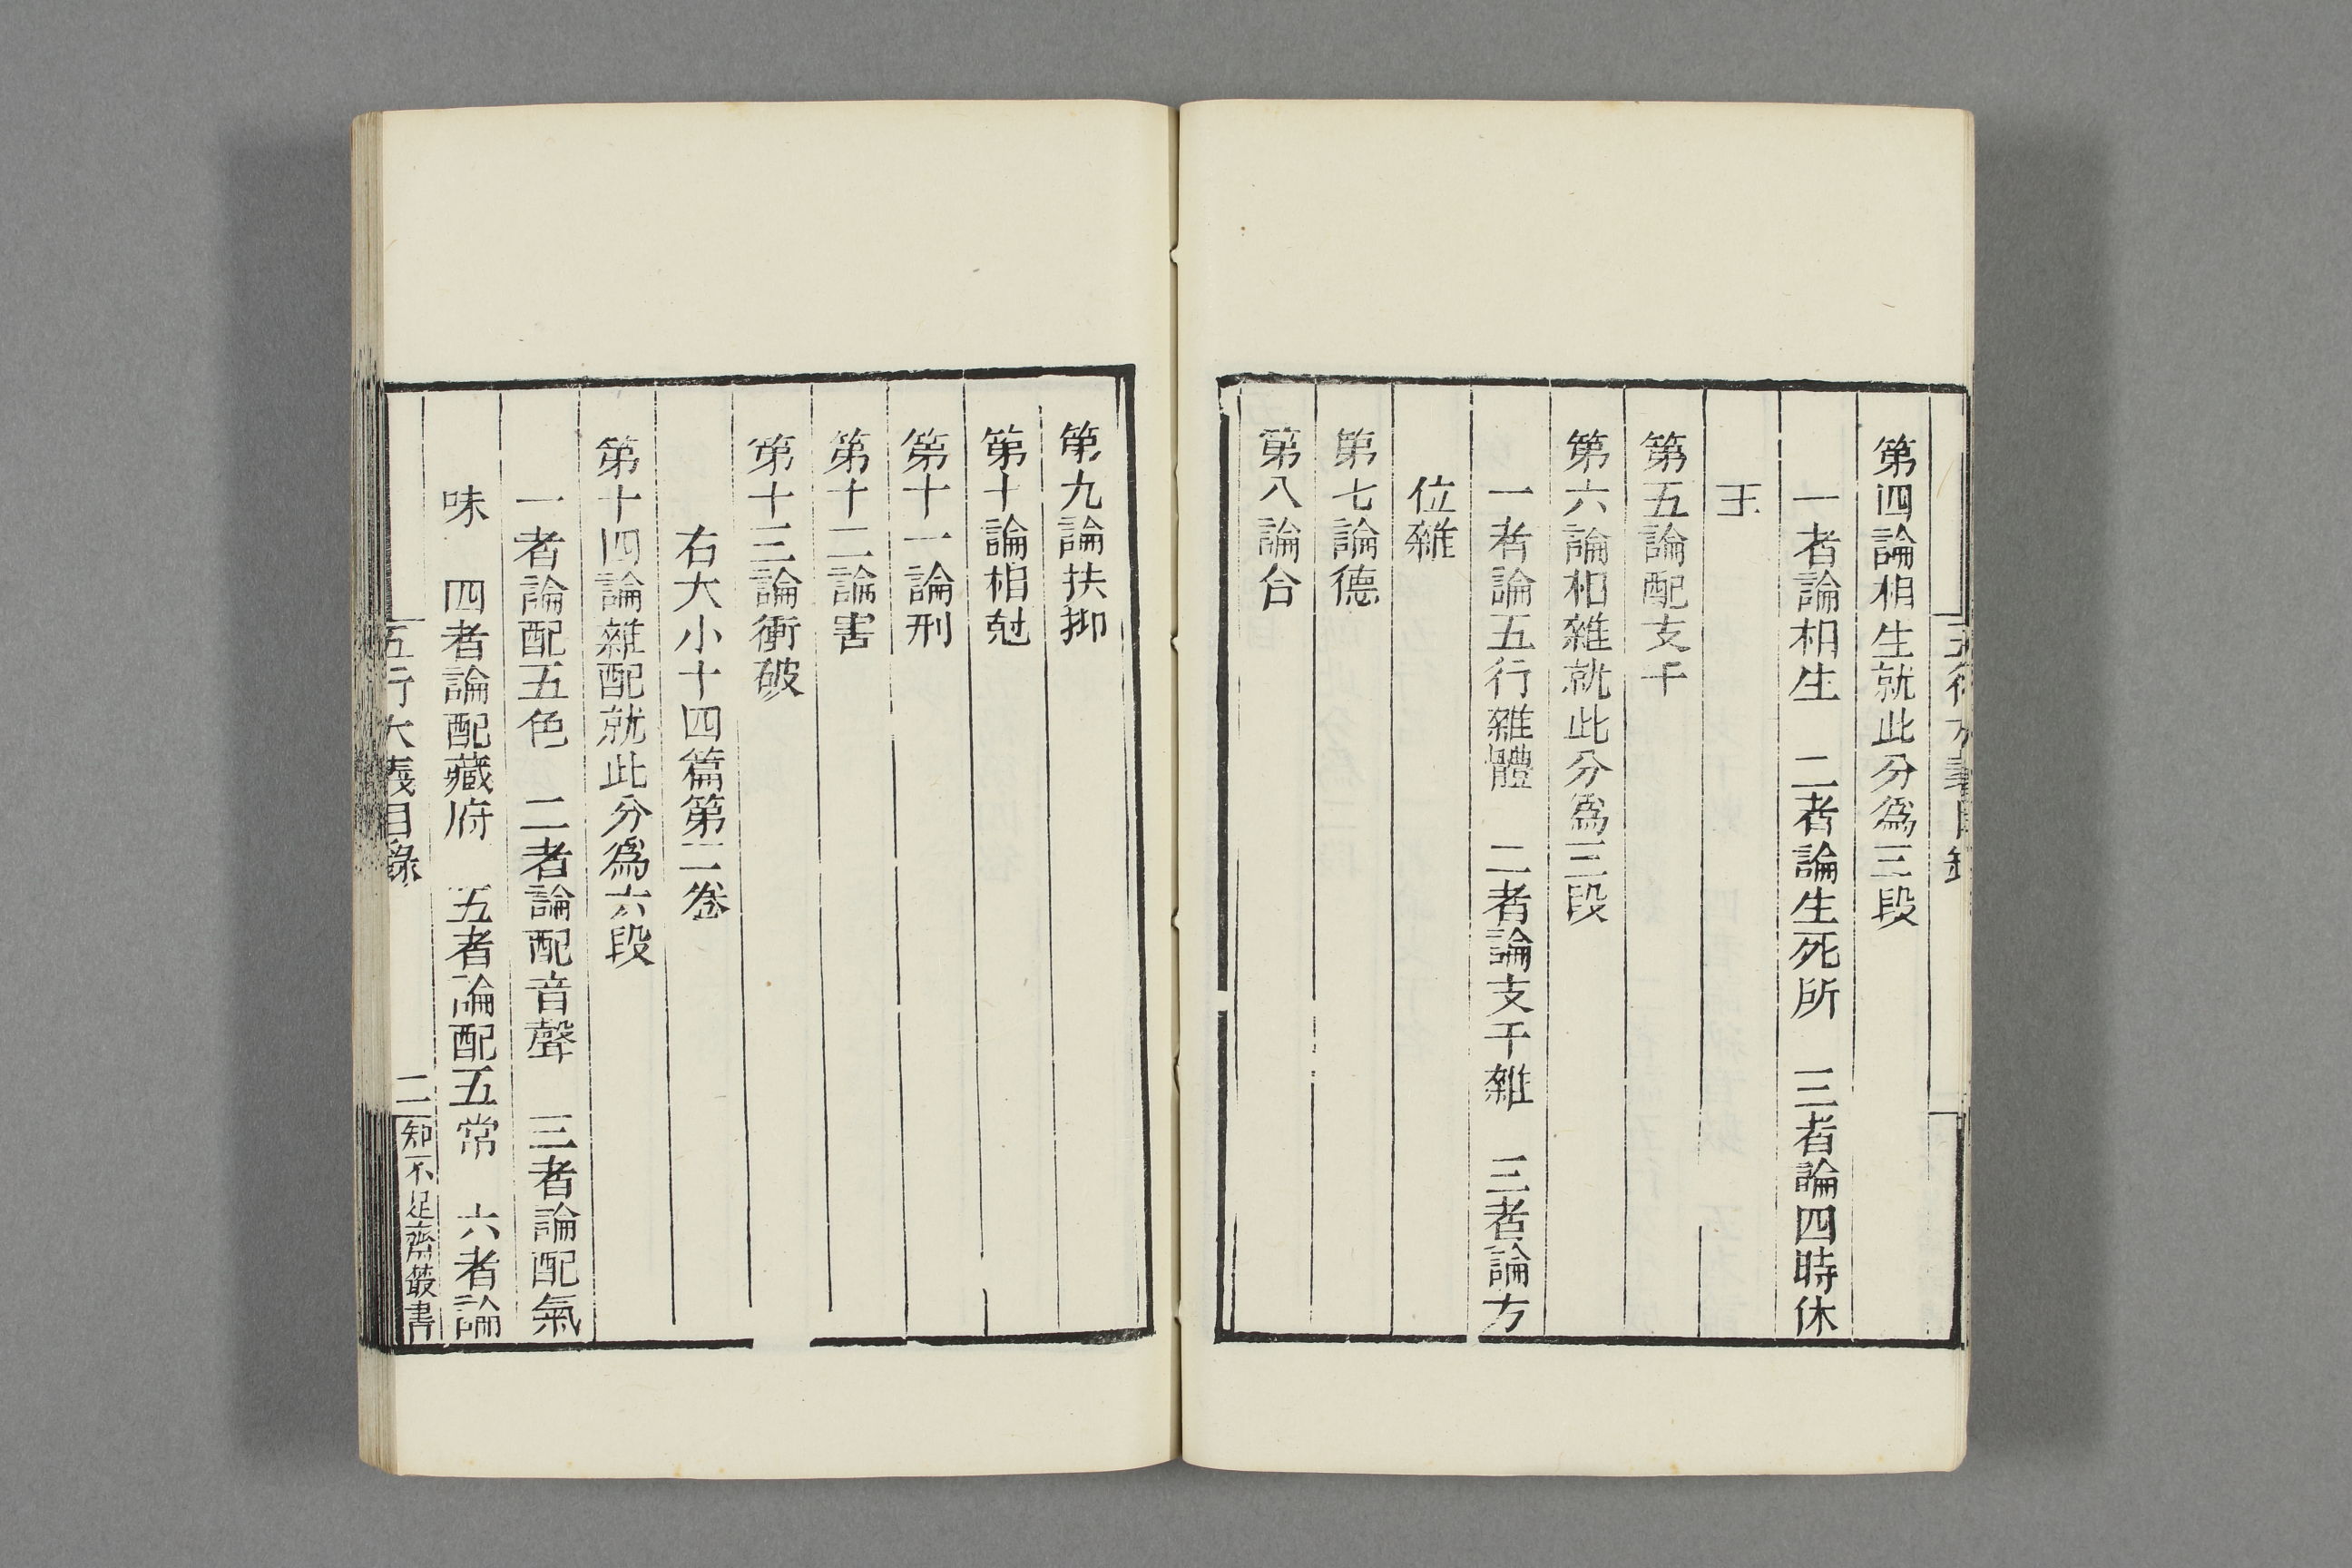 第四論相生就此分爲三段
一者論相生　二者論生死所　三者論四時休
王
第五論配支干
第六論相雜就此分爲三段
一者論五行雜體　二者論支干雜　三者論方
位雜
第七論德
第八論合
第九論扶抑
第十論相尅
第十一論刑
第十二論害
第十三論衝破
右大小十四篇第二卷
第十四論雜配就此分爲六段
一者論配五色　二者論配音聲　三者論配氣
味　四者論配藏府　五者論配五常　六者論
五行大義目錄　二　知不足齋叢書